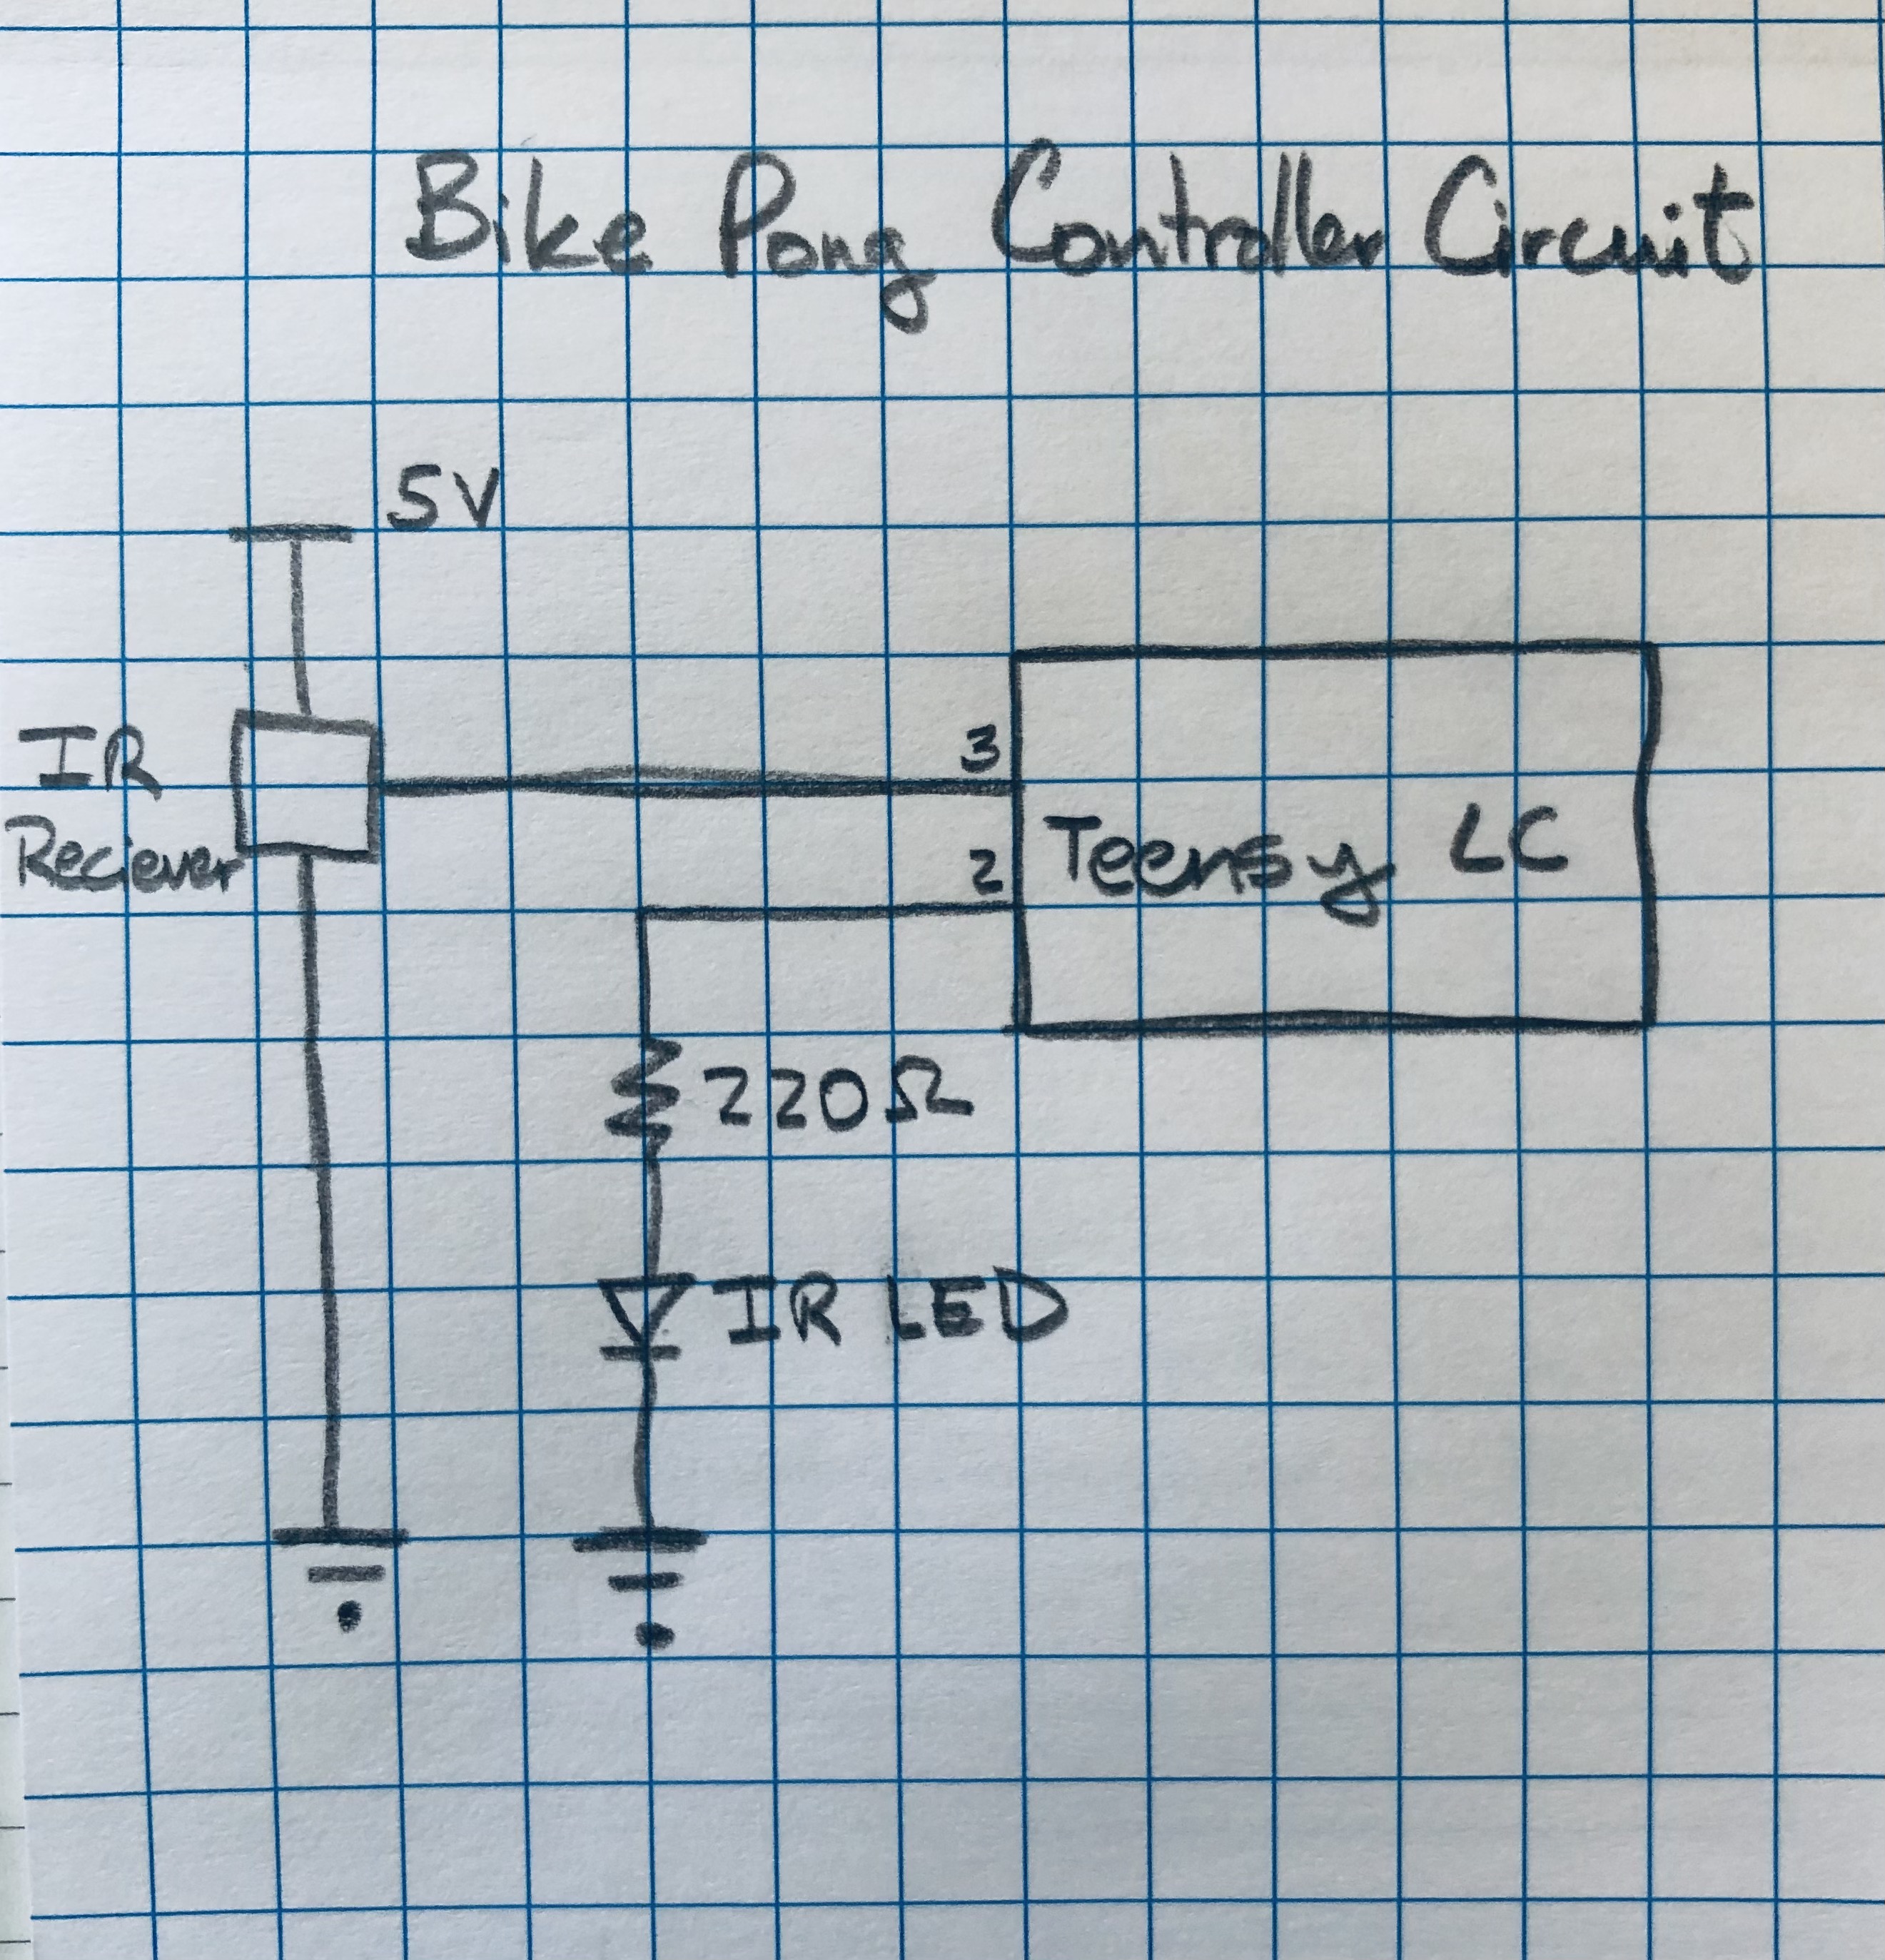 Bike Pong Controller Circuit
5V
IR
Reciever
3
2
Teensy LC
220Ω
IR LED